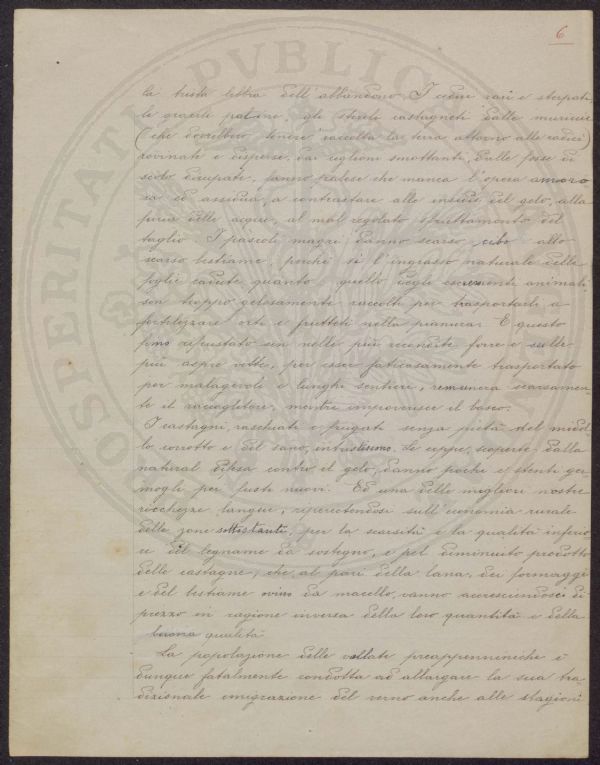 6
PROSPERITATI PVBLICAE
la trista lebbra dell'abbandono. I cedui rari e sterpati,
le gracili patine, gli sterili castagneti dalle muricce
(che dovrebbero tenere raccolta la terra attorno alle radici)
rovinate e disperse, dai ciglioni smottanti, dalle fosse di
scolo dirupate, fanno palese che manca l'opera amoro
sa ed assidua, a contrastare alle insidie del gelo, alla
furia delle acque, al mal regolato sfruttamento del
taglio. I pascoli magri danno scarso cibo allo
scarso bestiame, perchè sì l'ingrasso naturale delle
foglie cadute quanto quello degli escrementi animali
son troppo gelosamente raccolti per trasportarli a
fertilizzare orti e frutteti nella pianura. E questo
fimo rifrustato sin nelle più recondite forre e sulle
più aspre vette, per esser faticosamente trasportato
per malagevoli e lunghi sentieri, remunera scarsamen-
te il raccoglitore, mentre impoverisce il bosco.
I castagni, raschiati e frugati senza pietà del midol
lo corrotto e del sano, intristiscono. Le ceppe, scoperte dalla
natural difesa contro il gelo, danno pochi e stenti ger
mogli per fusti nuovi. Ed una delle migliori nostre
ricchezze langue, ripercotendosi sull'economia rurale
delle zone sottostanti, per la scarsità e la qualità inferio
re del legname da sostegno, e pel diminuito prodotto
delle castagne, che, al pari della lana, dei formaggi
e del bestiame ovino da macello, vanno accrescendosi di
prezzo in ragione inversa della loro quantità e della
buona qualità.
La popolazione delle vallate preappenniniche è
dunque fatalmente condotta ad allargare la sua tra
dizionale emigrazione del verno anche alle stagioni